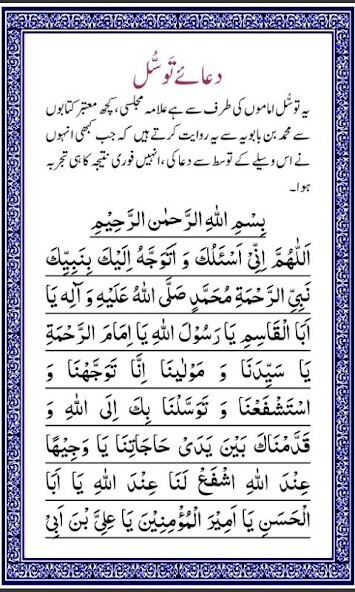 دعائے تَوسُّل
یہ توسُّل اماموں کی طرف سے ہے علامہ مجلسی، کچھ معتبر کتابوں
سے محمد بن بابویہ سے یہ روایت کرتے ہیں کہ جب کبھی انہوں
نے اس وسیلے کے توسط سے دعا کی، انہیں فوری نتیجہ کا ہی تجربہ
ہوا۔
بِسْمِ اللهِ الرَّحْمٰنِ الرَّحِيْمِ
اَللّٰهُمَّ اِنِّيْ اَسْئَلُكَ وَ اَتَوَجَّهُ اِلَيْكَ بِنَبِيِّكَ
نَبِيِّ الرَّحْمَةِ مُحَمَّدٍ صَلَّى اللهُ عَلَيْهِ وَ آلِهِ يَا
اَبَا الْقَاسِمِ يَا رَسُوْلَ اللهِ يَا اِمَامَ الرَّحْمَةِ
يَا سَيِّدَنَا وَ مَوْلٰينَا اِنَّا تَوَجَّهْنَا وَ
اسْتَشْفَعْنَا وَ تَوَسَّلْنَا بِكَ اِلَى اللهِ وَ
قَدَّمْنَاكَ بَيْنَ يَدَىْ حَاجَاتِنَا يَا وَجِيْهًا
عِنْدَ اللهِ اشْفَعْ لَنَا عِنْدَ اللهِ يَا اَبَا
الْحَسَنِ يَا اَمِيْرَ الْمُؤْمِنِيْنَ يَا عَلِىَّ بْنَ اَبِىْ